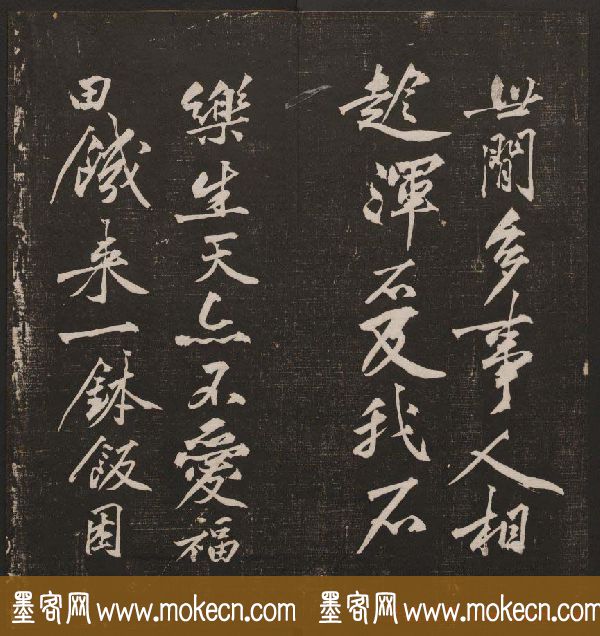 世間多事人相
趂渾不及我不
樂生天亦不愛福
田饑來一鉢飯困
墨客网 www.mokecn.com
墨客网 www.mokecn.com